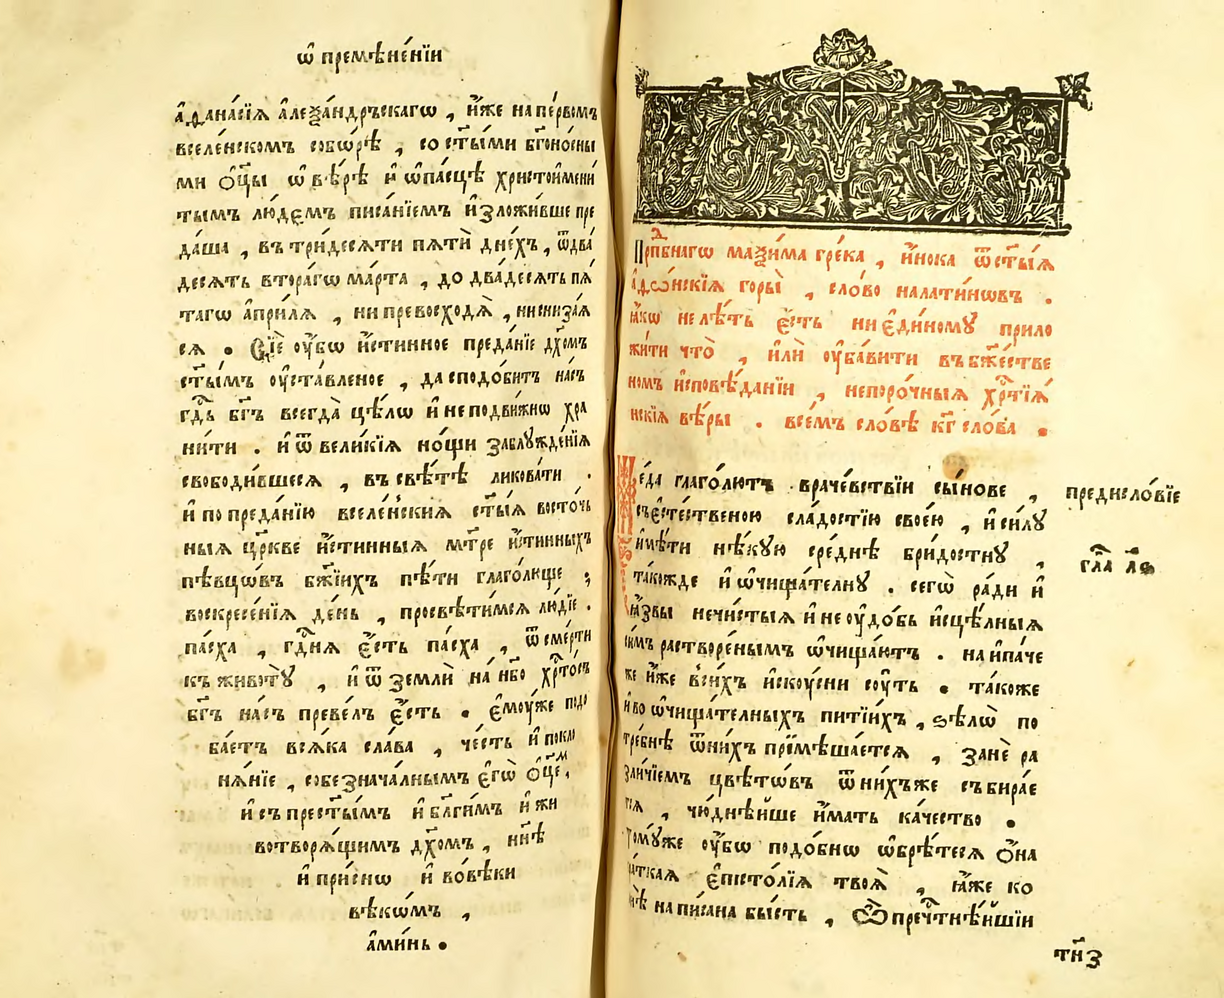 ѡ҆ премѣне́нїи
а҆ѳана́сїѧ а҆леѯа́ндръскагѡ , и҆́же на пе́рвомъ
вселе́нскомъ собо́рѣ , со ст҃ы́ми бг҃оно́сны
ми ѻ҆ц҃ы̀ ѡ҆ вѣ́рѣ и҆ ѡ҆ па́сцѣ христоимени́
тымъ лю́демъ писа́нїемъ и҆зложи́вше пре
да́ша , въ три́десѧти пѧтѝ дне́хъ , ѿ два́
десѧть втора́гѡ ма́рта , до два́десѧть пѧ́
тагѡ а҆прі́лѧ , ни превосходѧ̀ , ни снизаѧ́
сѧ . Сїѐ ᲂу҆́бѡ и҆́стинное преда́нїе дх҃омъ
ст҃ы́мъ ᲂу҆ста́вленое , да сподо́битъ на́съ
гд҇ь бг҃ъ всегда̀ цѣ́лѡ и҆ неподви́жнѡ хра
ни́ти . и҆ ѿ вели́кїѧ но́щи заблꙋжде́нїѧ
свободи́вшесѧ , въ свѣ́тѣ ликова́ти .
и҆ по преда́нїю вселе́нскиѧ ст҃ы́ѧ восто́чь
ныѧ цр҃кве и҆́стинныѧ мт҃ре и҆́стинныхъ
пѣвцѡ́въ бж҃їихъ пѣ́ти глаго́люще ;
воскресе́нїѧ де́нь , просвѣти́мсѧ лю́дїе .
па́сха , гдн҇ѧ є҆́сть па́сха , ѿ сме́рти
къ животꙋ̀ , и҆ ѿ землѝ на́ нб҃о хрⷭ҇то́съ
бг҃ъ на́съ преве́лъ є҆́сть . є҆мꙋ́же подо
ба́етъ всѧ́ка сла́ва , че́сть и҆ покло
нѧ́нїе , со безнача́лнымъ є҆гѡ̀ ѻ҆ц҃е́м ,
и҆ съ прест҃ы́мъ и҆ бл҃ги́мъ и҆ жи
вотворѧ́щимъ дх҃омъ , нн҃ѣ
и҆ при́снѡ и҆ во вѣ́ки
вѣкѡ́мъ ,
а҆ми́нь .
Прпⷣбнагѡ маѯи́ма гре́ка , и҆́нока ѿ ст҃ы́ѧ
а҆ѳѡ́нскїѧ горы̀ , сло́во на лати́нѡвъ .
ꙗ҆́кѡ не лѣ́ть є҆́сть ни є҆ди́номꙋ прило
жи́ти что̀ , и҆лѝ ᲂу҆ба́вити въ бж҃е́стве
номъ и҆сповѣ́данїи , непоро́чныѧ хрⷭ҇тїѧ́
нскїѧ вѣ́ры . всѣ́мъ сло́вѣ к҃г сло́ва .
Меда глаго́лютъ враче́вствїи сы́нове ,
съ є҆сте́ственою сла́достїю свое́ю , и҆ си́лꙋ
и҆мѣ́ти нѣ́кꙋю сре́днѣ бри́достнꙋ ,
та́кожде и҆ ѡ҆чища́телнꙋ . сегѡ̀ ра́ди и҆
ꙗ҆́звы нечи́стыѧ и҆ неᲂу҆до́бь и҆сцѣ́лныѧ
си́мъ растворе́нымъ ѡ҆чища́ютъ . на и҆па́че
же и҆́же в си́хъ и҆скꙋ́сни сꙋ́ть . та́коже
и҆ во ѡ҆чища́телныхъ питїи́хъ , ѕѣлѡ̀ по
тре́бнѣ ѿ ни́хъ прїимѣша́етсѧ , занѐ ра
зли́чїемъ цвѣтѡ́въ ѿ ни́хъже събира́е
тсѧ , чю́днѣйше и҆́мать ка́чество .
томꙋ́же ᲂу҆́бѡ подо́бнѡ ѡ҆брѣ́тесѧ ѻ҆́на
кра́ткаѧ є҆пісто́лїѧ твоѧ̀ , ꙗ҆́же ко
мнѣ̀ напи́сана бы́сть , Ѽ пречⷭ҇тнѣ́йшїи
предисло́вїе
гла҇ л҃ѳ
ти҃з